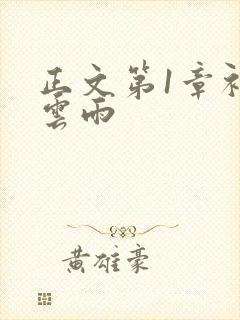 正文第1章初
雲雨
黄雄豪